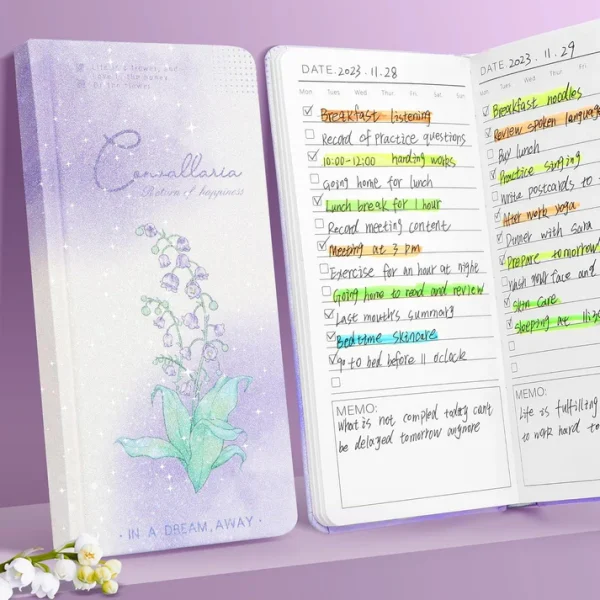 Convallaria
Return of happiness
· IN A DREAM, AWAY ·
DATE. 2023 . 11.28
Mon. Tues. Wed. Thur. Fri. Sat. Sun.
Breakfast listening
Record of Practice questions
10:00-12:00 handing works
Going home for lunch
Lunch break for 1 hour
Record meeting content
Meeting at 3 pm
Exercise for an hour at night
Going home to read and review
Last mouth's summary
Bedtime skincare
go to bed before 11 o'clock
MEMO:
What is not compled today can't
be delayed tomorrow anymore
DATE. 2023 . 11. 29
Mon. Tues. Wed. Thur.
Breakfast noodles
Review spoken language
Buy lunch
Practice singing
Write postcards to
After work yoga
Dinner with Sara
Prepare tomorrow
Wash your face and
Skin Care
Sleeping at
MEMO:
Life is fulfilling
to work hard